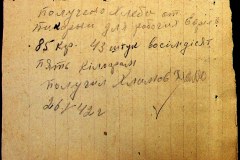 Получено хлеба от
пекарни для рабочих
85 кгр. 43 штук восімдісят
пять кіллограм
получил Хламов
26/I 42 г